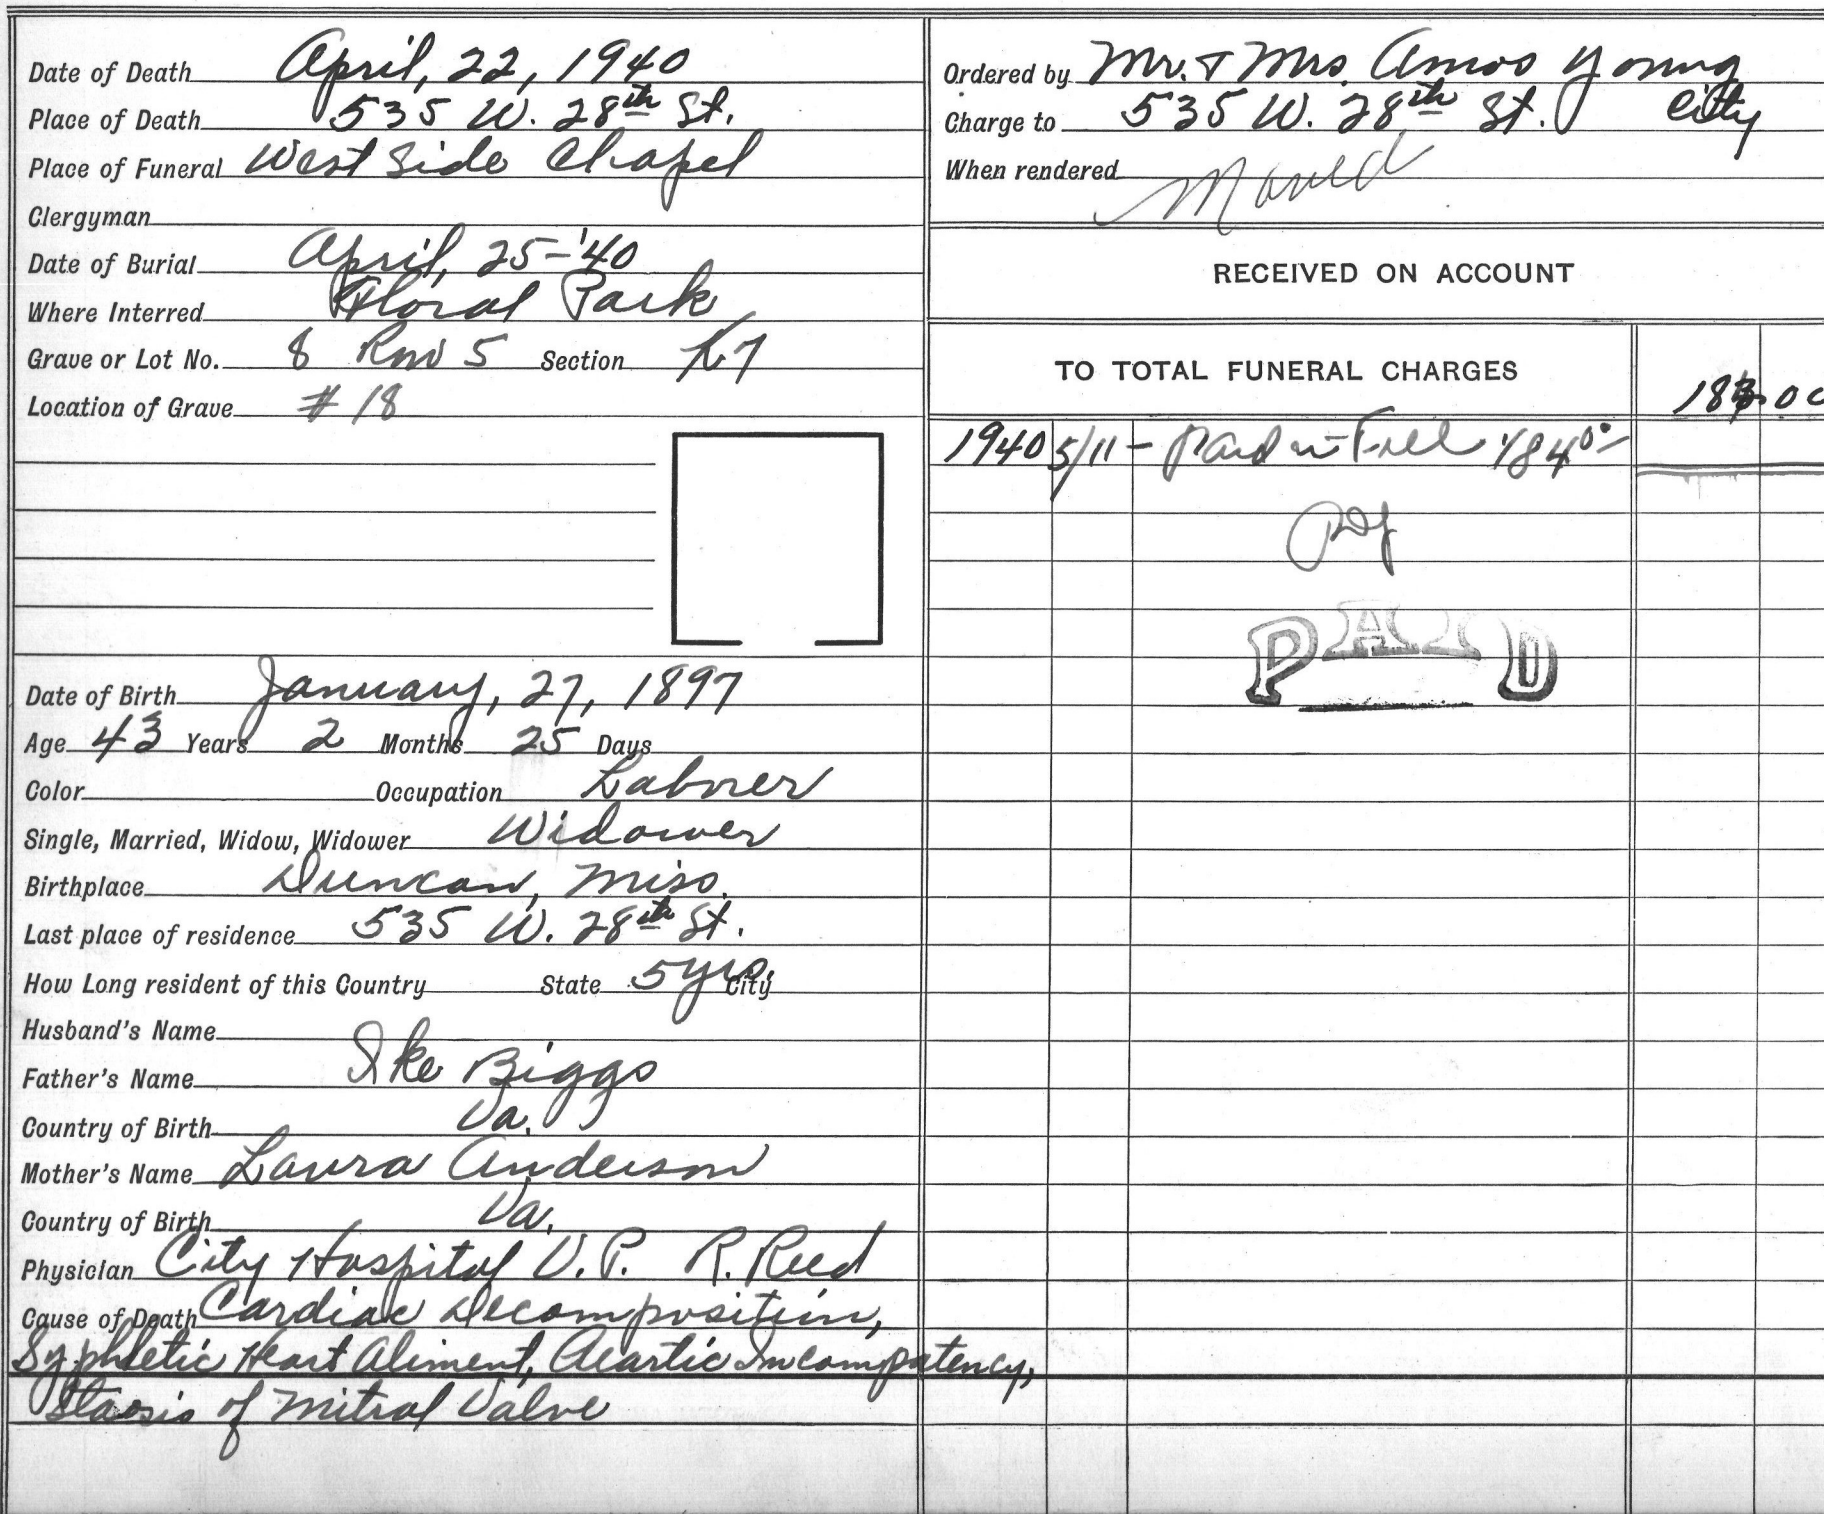 Date of Death April, 22, 1940
Place of Death 535 W. 28th St.
Place of Funeral West Side Chapel
Clergyman
Date of Burial April, 25-'40
Where Interred Floral Park
Grave or Lot No. 8 Row 5 Section 27
Location of Grave # 18
Date of Birth January, 27, 1897
Age 43 Years 2 Months 25 Days
Color Occupation Laborer
Single, Married, Widow, Widower Widower
Birthplace Duncan, Miss.
Last place of residence 535 W. 28th St.
How Long resident of this Country State 5 yrs. City
Husband's Name
Father's Name Ike Biggs
Country of Birth Va.
Mother's Name Laura Anderson
Country of Birth Va.
Physician City Hospital V.P. R. Reed
Cause of Death Cardiac Decomposition,
Syphletic Heart Aliment, Aeartic Incompatency,
Staosis of Mitral Valve
Ordered by Mr. & Mrs. Amos Young
Charge to 535 W. 28th St. City
When rendered
RECEIVED ON ACCOUNT
TO TOTAL FUNERAL CHARGES
1940 5/11 - Paid in Full 184 00
PAID